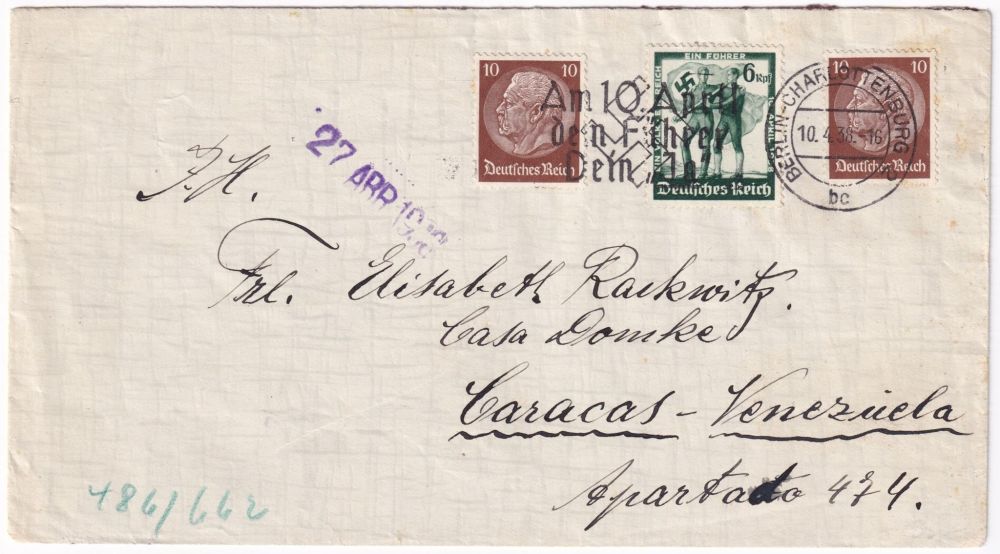 10 10
Deutsches Reich
EIN VOLK EIN REICH
EIN FÜHRER
6 Rpf
Deutsches Reich
10
Deutsches Reich
Am 10. April
dem Führer
Dein "Ja"
BERLIN-CHARLOTTENBURG
10.4.38.-16
bc
27 ABR 1938
Frl. Elisabeth Rackwitz.
Casa Domke
Caracas - Venezuela
Apartado 474.
486/662